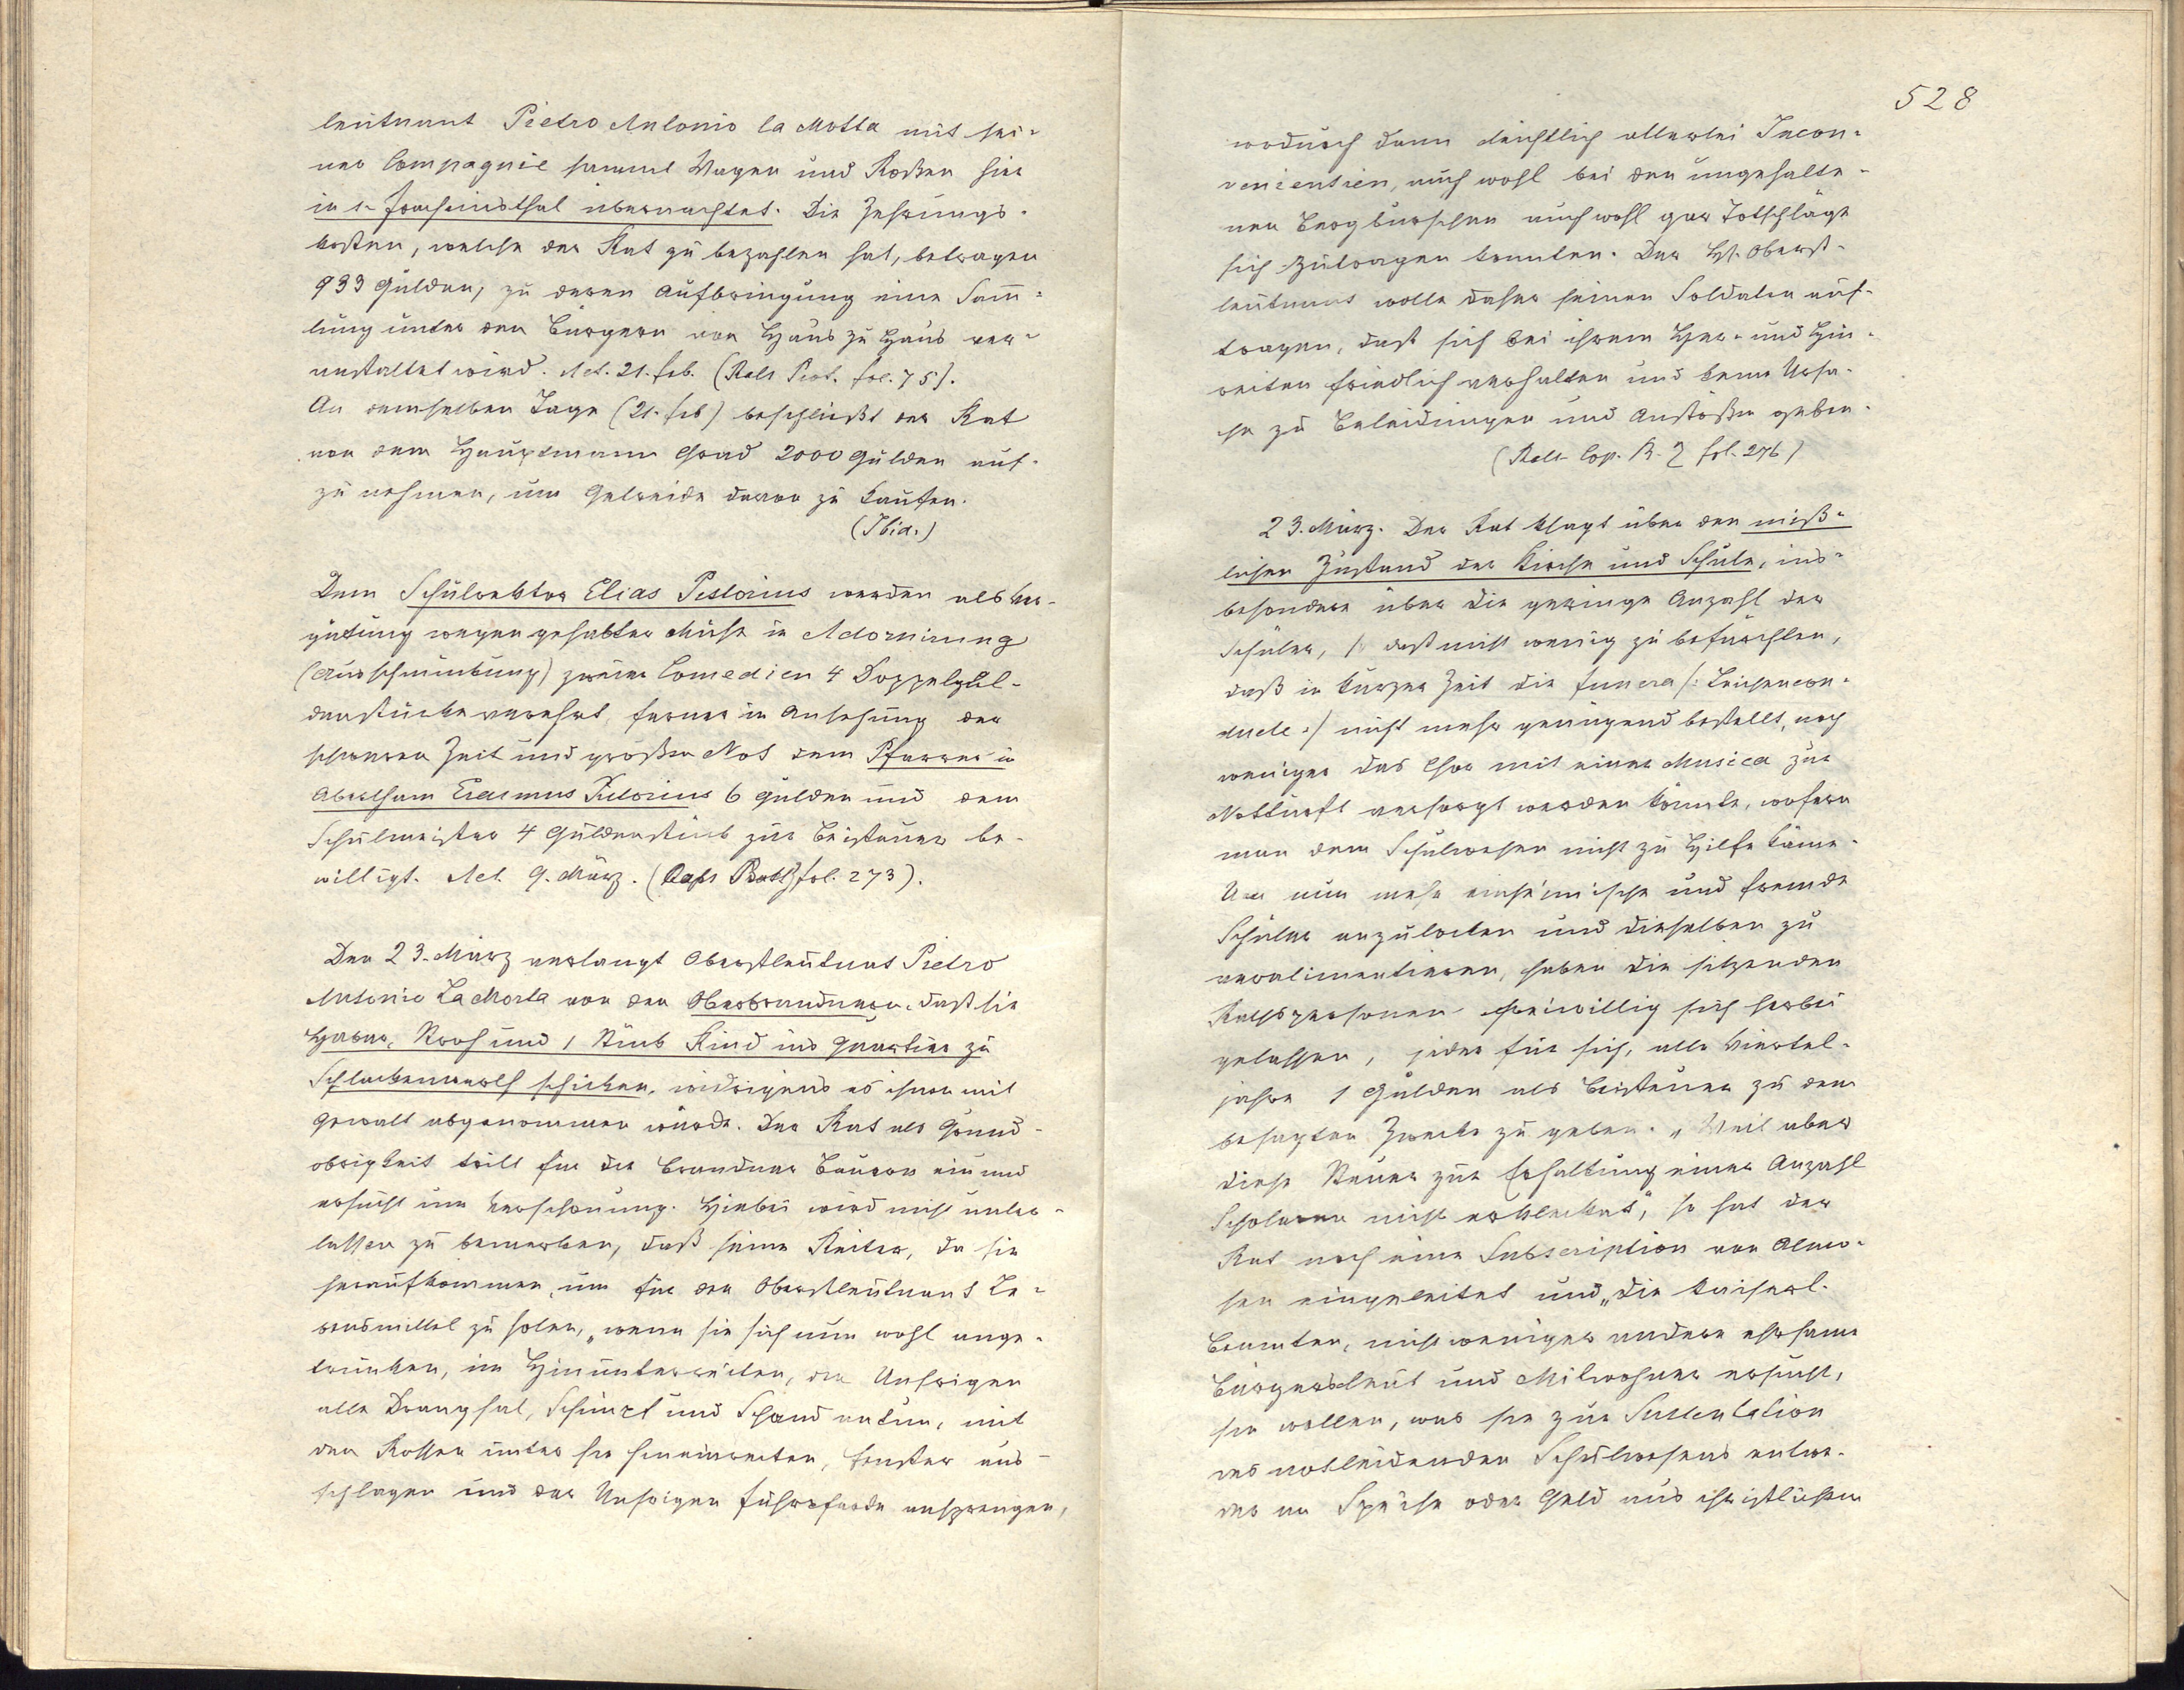 leutnant Pietro Antonio la Motta mit sei-
ner Compagnie sammt Wagen und Rossen hier
in s. Joachimsthal übernachtet. Die Zehrungs-
kosten, welche der Rat zu bezahlen hat, betragen
933 Gulden, zu deren Aufbringung eine Sam̄-
lung unter den Bürgern von Haus zu Haus ver-
anstaltet wird. Act. 21. feb. (Rats Prot. fol. 75).
An demselben Tage (21. feb) beschließt der Rat
von dem Hauptmann Grad 2000 Gulden auf-
zu nehmen, um Getreide davon zu kaufen.
(Ibid.)
Dem Schulrektor Elias Pistorius werden als Ver-
gütung wegen gehabter Mühe in Adornirung
(Ausschmückung) zweier Comedien 4 Doppelgul-
denstücke verehrt, ferner in Ansehung der
schweren Zeit und großen Not dem Pfarrer in
Abertham Erasmus Pistorius 6 Gulden und dem
Schulmeister 4 Guldenstück zur Beisteuer be-
willigt. Act. 9. März. (fol. 273).
Den 23. März verlangt Oberstleutnant Pietro
Antonio La Motta von den Oberbrandnern, daß sie
Haber, Stroh und 1 Stück Rind ins Quartier zu
Schlackenwerth schicken, widrigens es ihnen mit
Gewalt abgenommen würde. Der Rat als Grund-
obrigkeit tritt für die Brandner Bauern ein und
ersucht um Verschonung. Hiebei wird nicht unter-
lassen zu bemerken, daß seine Reiter, da sie
heraufkommen, um für den Oberstleutnant Le-
bensmittel zu holen, „wenn sie sich nun wohl ange-
trunken, im Hinunterreiten, den Unsrigen
alle Drangsal, Schimpf und Schand antun, mit
den Rossen unter sie hineinreiten, Fenster aus-
schlagen und der Unsrigen Fuhrpferde ansprengen,
528
wodurch dann leichtlich allerlei Incon-
venientien, auch wohl bei den ungehalte-
nen Bergburschen auch wohl gar Totschläge
sich zutragen konnten. Der H. Oberst-
leutnant wolle daher seinen Soldaten auf-
tragen, daß sich bei ihrem Her- und Hin-
reiten friedlich verhalten und keine Ursa-
che zu Beleidungen und Anstößen geben.
(Rats Cop. B. Z fol. 276)
23. März. Der Rat klagt über den miß-
lichen Zustand der Kirche und Schule, ins-
besondere über die geringe Anzahl der
Schüler, so daß nicht wenig zu befürchten,
daß in kurzer Zeit die funera /: Leichencon-
ducte :/ nicht mehr genügend bestellt, noch
weniger das Chor mit einer Musica zur
Notturft versorgt werden könnte, wofern
man dem Schulwesen nicht zu Hilfe käme.
Um nun mehr einheimische und fremde
Schüler anzulocken und dieselben zu
veralimentieren, haben die sitzenden
Rathspersonen freiwillig sich herbei
gelassen, jeder für sich, alle Viertel-
jahre 1 Gulden als Beisteuer zu dem
besagten Zwecke zu geben. „Weil aber
diese Steuer zur Erhaltung einer Anzahl
Scholaren nicht erklecket", so hat der
Rat noch eine Subscription von Almo-
sen eingeleitet und „die kaiserl.
Beamten, nicht weniger andere ehrsame
Bürgersleut und Mitwohner ersucht,
sie wollen, was sie zur Sustentation
des notleidenden Schulwesens entwe-
der an Speise oder Geld aus christlichem